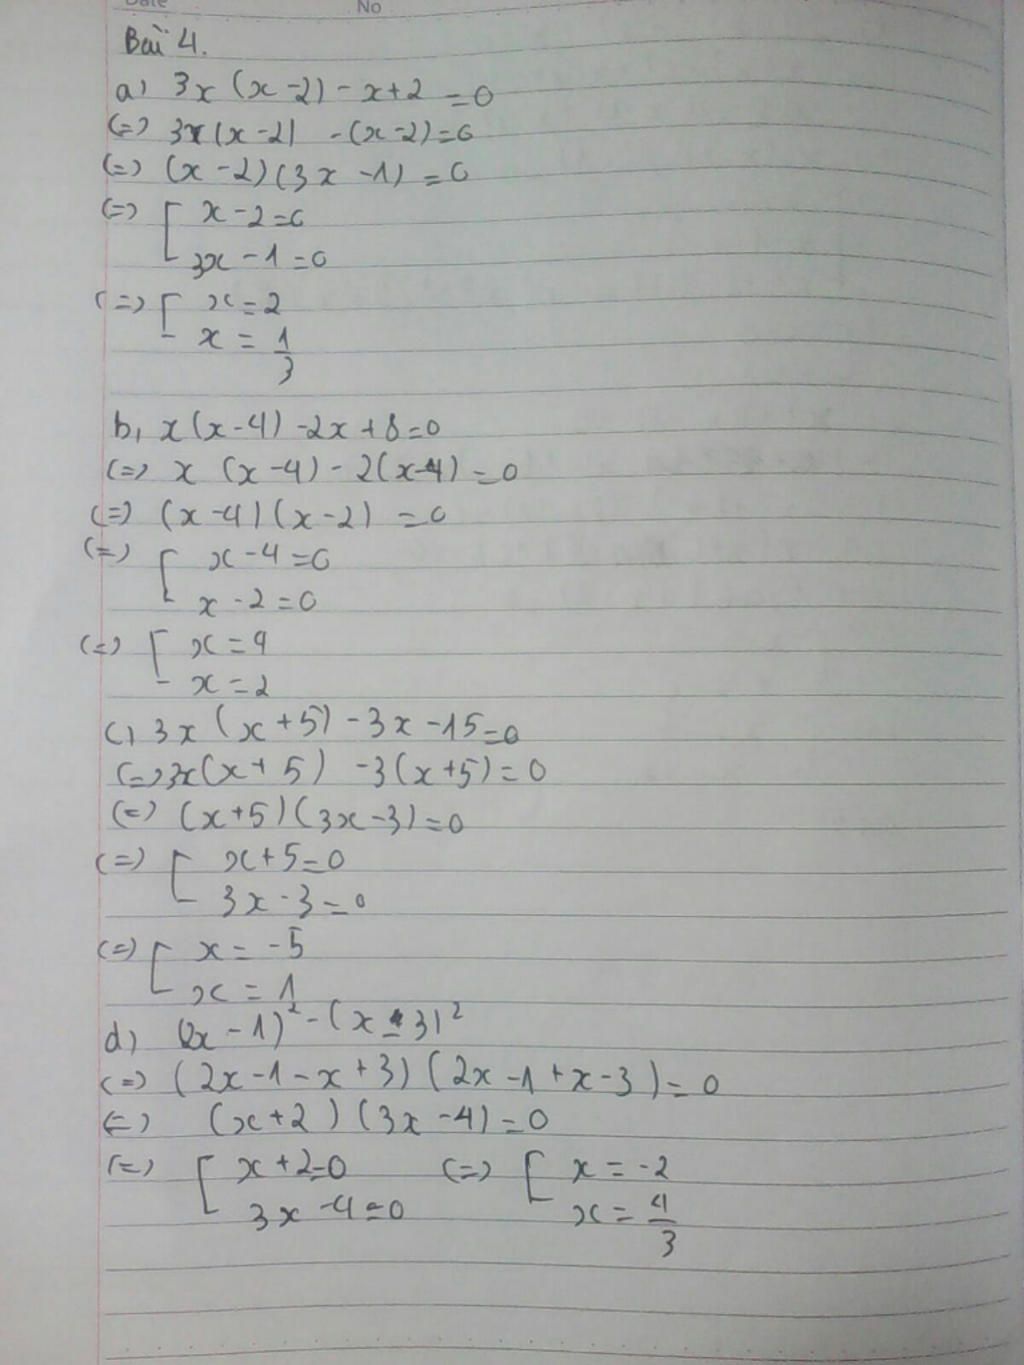 Date No
Bài 4.
a) 3x(x-2) - x+2 = 0
(=) 3x(x-2) - (x-2)=0
(=) (x-2)(3x-1) = 0
(=) [ x-2=0
3x-1=0
(=) [ x=2
x = 1/3
b, x(x-4) -2x+8=0
(=) x (x-4) - 2(x-4) = 0
(=) (x-4)(x-2) = 0
(=) [ x-4=0
x-2=0
(=) [ x=4
x=2
c) 3x(x+5) -3x-15=0
(=) 3x(x+5) -3(x+5)=0
(=) (x+5)(3x-3)=0
(=) [ x+5=0
3x-3=0
(=) [ x = -5
x = 1
d) (2x-1)² - (x-3)²
(=) (2x-1-x+3)(2x-1+x-3)=0
(=) (x+2)(3x-4)=0
(=) [ x+2=0 (=) [ x = -2
3x-4=0 x = 4/3